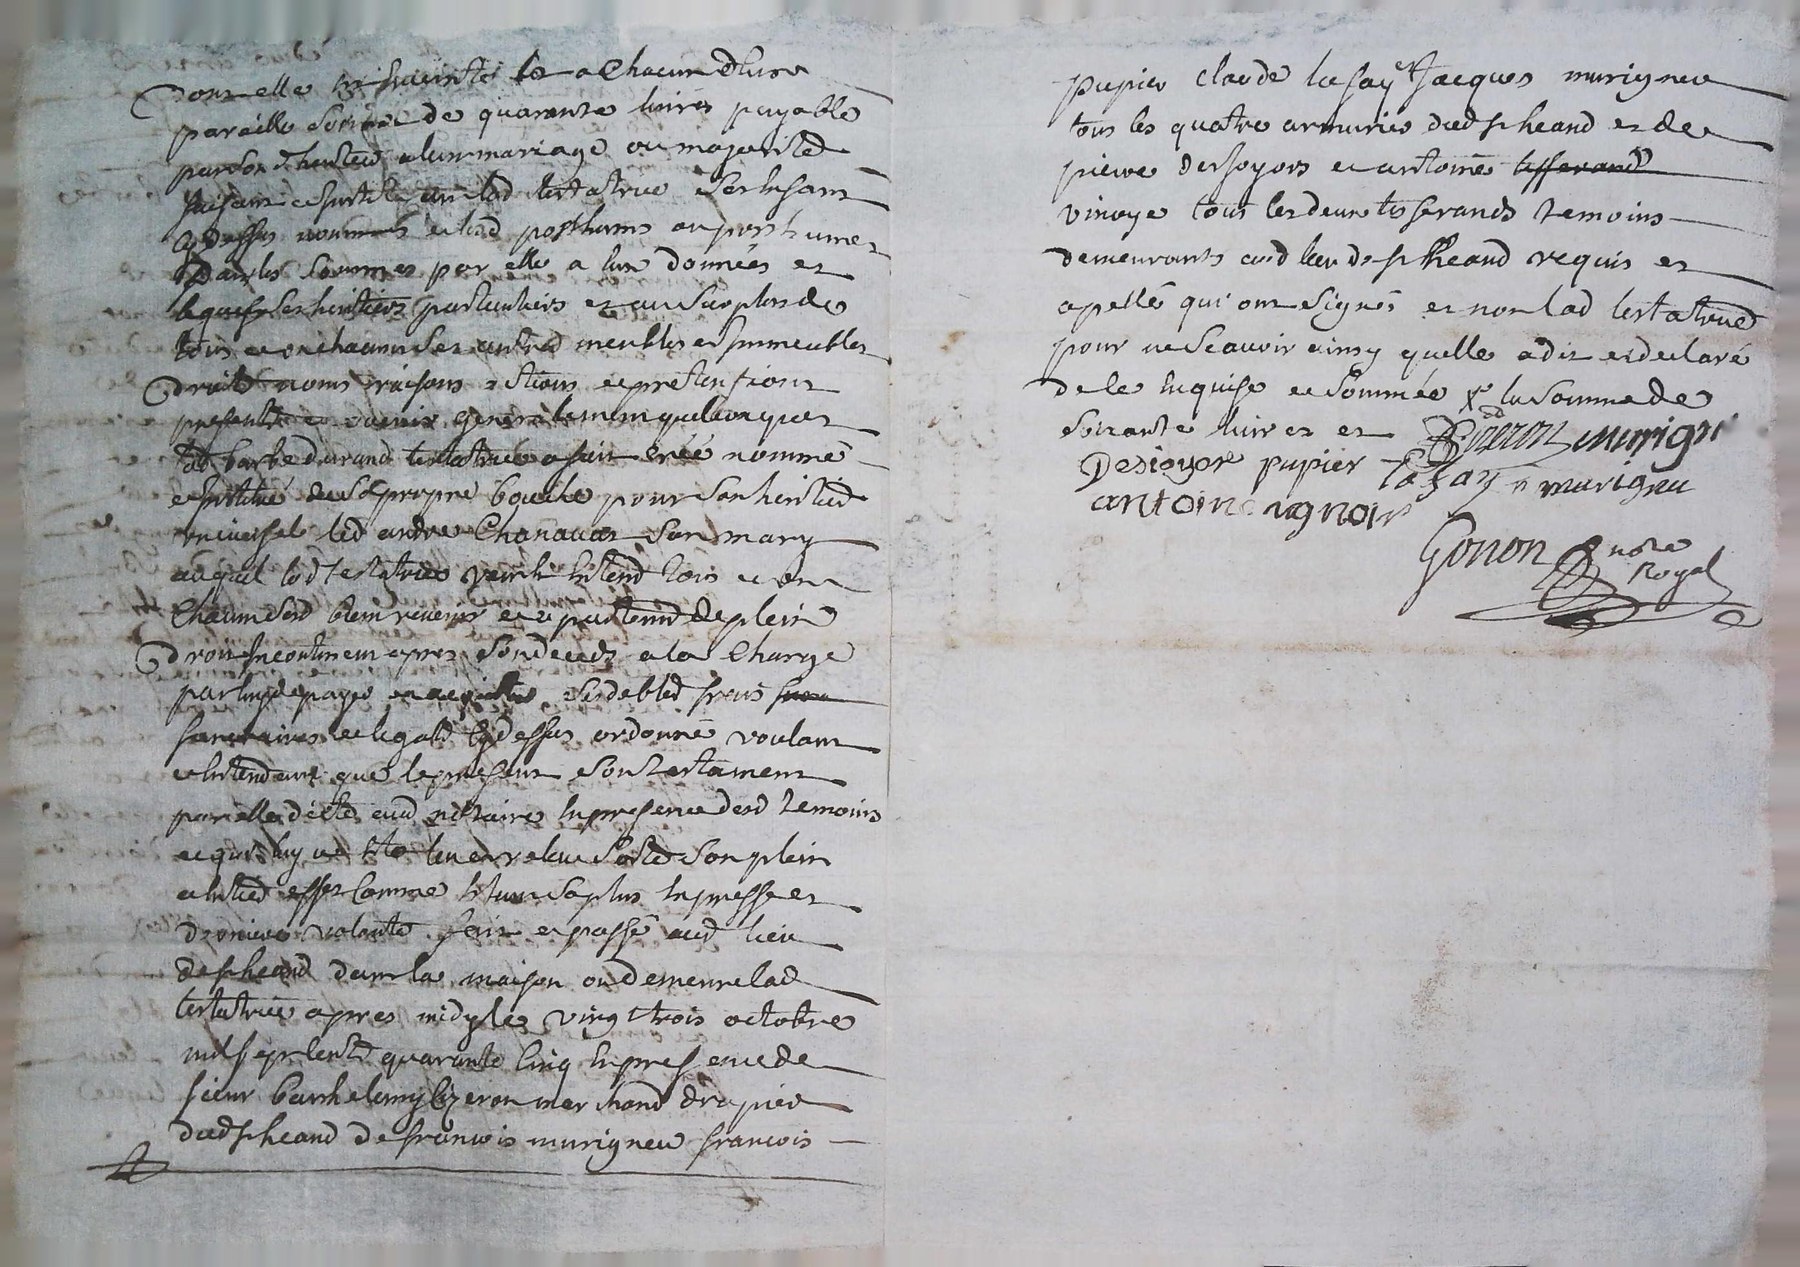 dont elle est enceinte et a chacun d'eux
pareille somme de quarante livres payable
par son d. heritier a leur mariage ou majorité
faisant et instituant lad testatrice ses enfans
cy dessus nommés et led posthume ou posthumes
dans les sommes par elle a eux données et
leguées ses heritiers particuliers et au surplus de
tous et un chacuns ses autres meubles et immeubles
droits noms raisons actions et pretentions
presents et avenir generalement quelconques
lad barbe durand testatrice a fait créé nommé
et institué de sa propre bouche pour son heritier
universel led andre Chanavat son mary
auquel lad testatrice veut et entend tous et un
chacuns sesd biens revenir et apartenir de plein
droit incontinent apres son deceds a la charge
par luy de payer et acquitter ses debtes frais
funeraires et legats cy dessus ordonné voulant
et entendant que le present son testament
par elle dicté aud notaire en presence desd temoins
et qui luy a eté leu et releu sorte son plein
et entier effet comme etant sa plus expresse et
derniere volonté fait et passé aud lieu
de st heand dans la maison ou demeure lad
testatrice apres midy le vingt trois octobre
mil sept cents quarante cinq en presence de
sieur barthelemy bizeron marchand drapier
dud st heand de françois murigneu françois
pupier claude lafay et Jacques murigneu
tous les quatre armuriers dud st heand et de
pierre desjoyors et antoine tisserand
vinoye tous les deux tisserands temoins
demeurants aud lieu de st heand requis et
apellés qui ont signés et non lad testatrice
pour ne scavoir ainsy quelle a dit et declaré
de ce enquise et sommée x la somme de
soixante livres et Bizeron murigneu
Desjoyor pupier lafay murigneu
antoine vignoir
Gonon nore
Royal